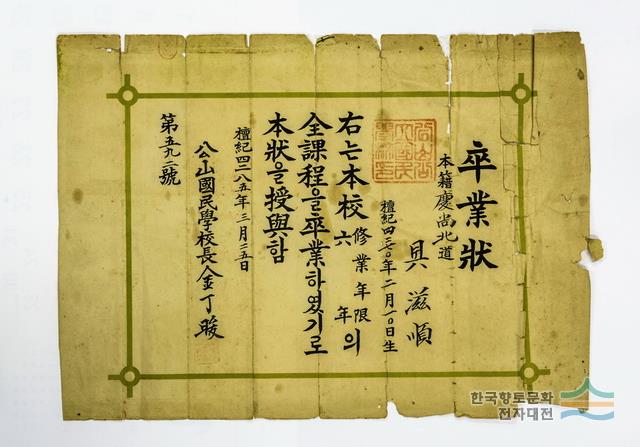 卒業狀
本籍慶尙北道
具滋順
檀紀四二七〇年二月一〇日生
右는本校修業年限六年의
全課程을卒業하였기로
本狀을授與함
檀紀四二八五年三月二五日
公山國民學校長金丁晙
第五九二號
한국향토문화
전자대전